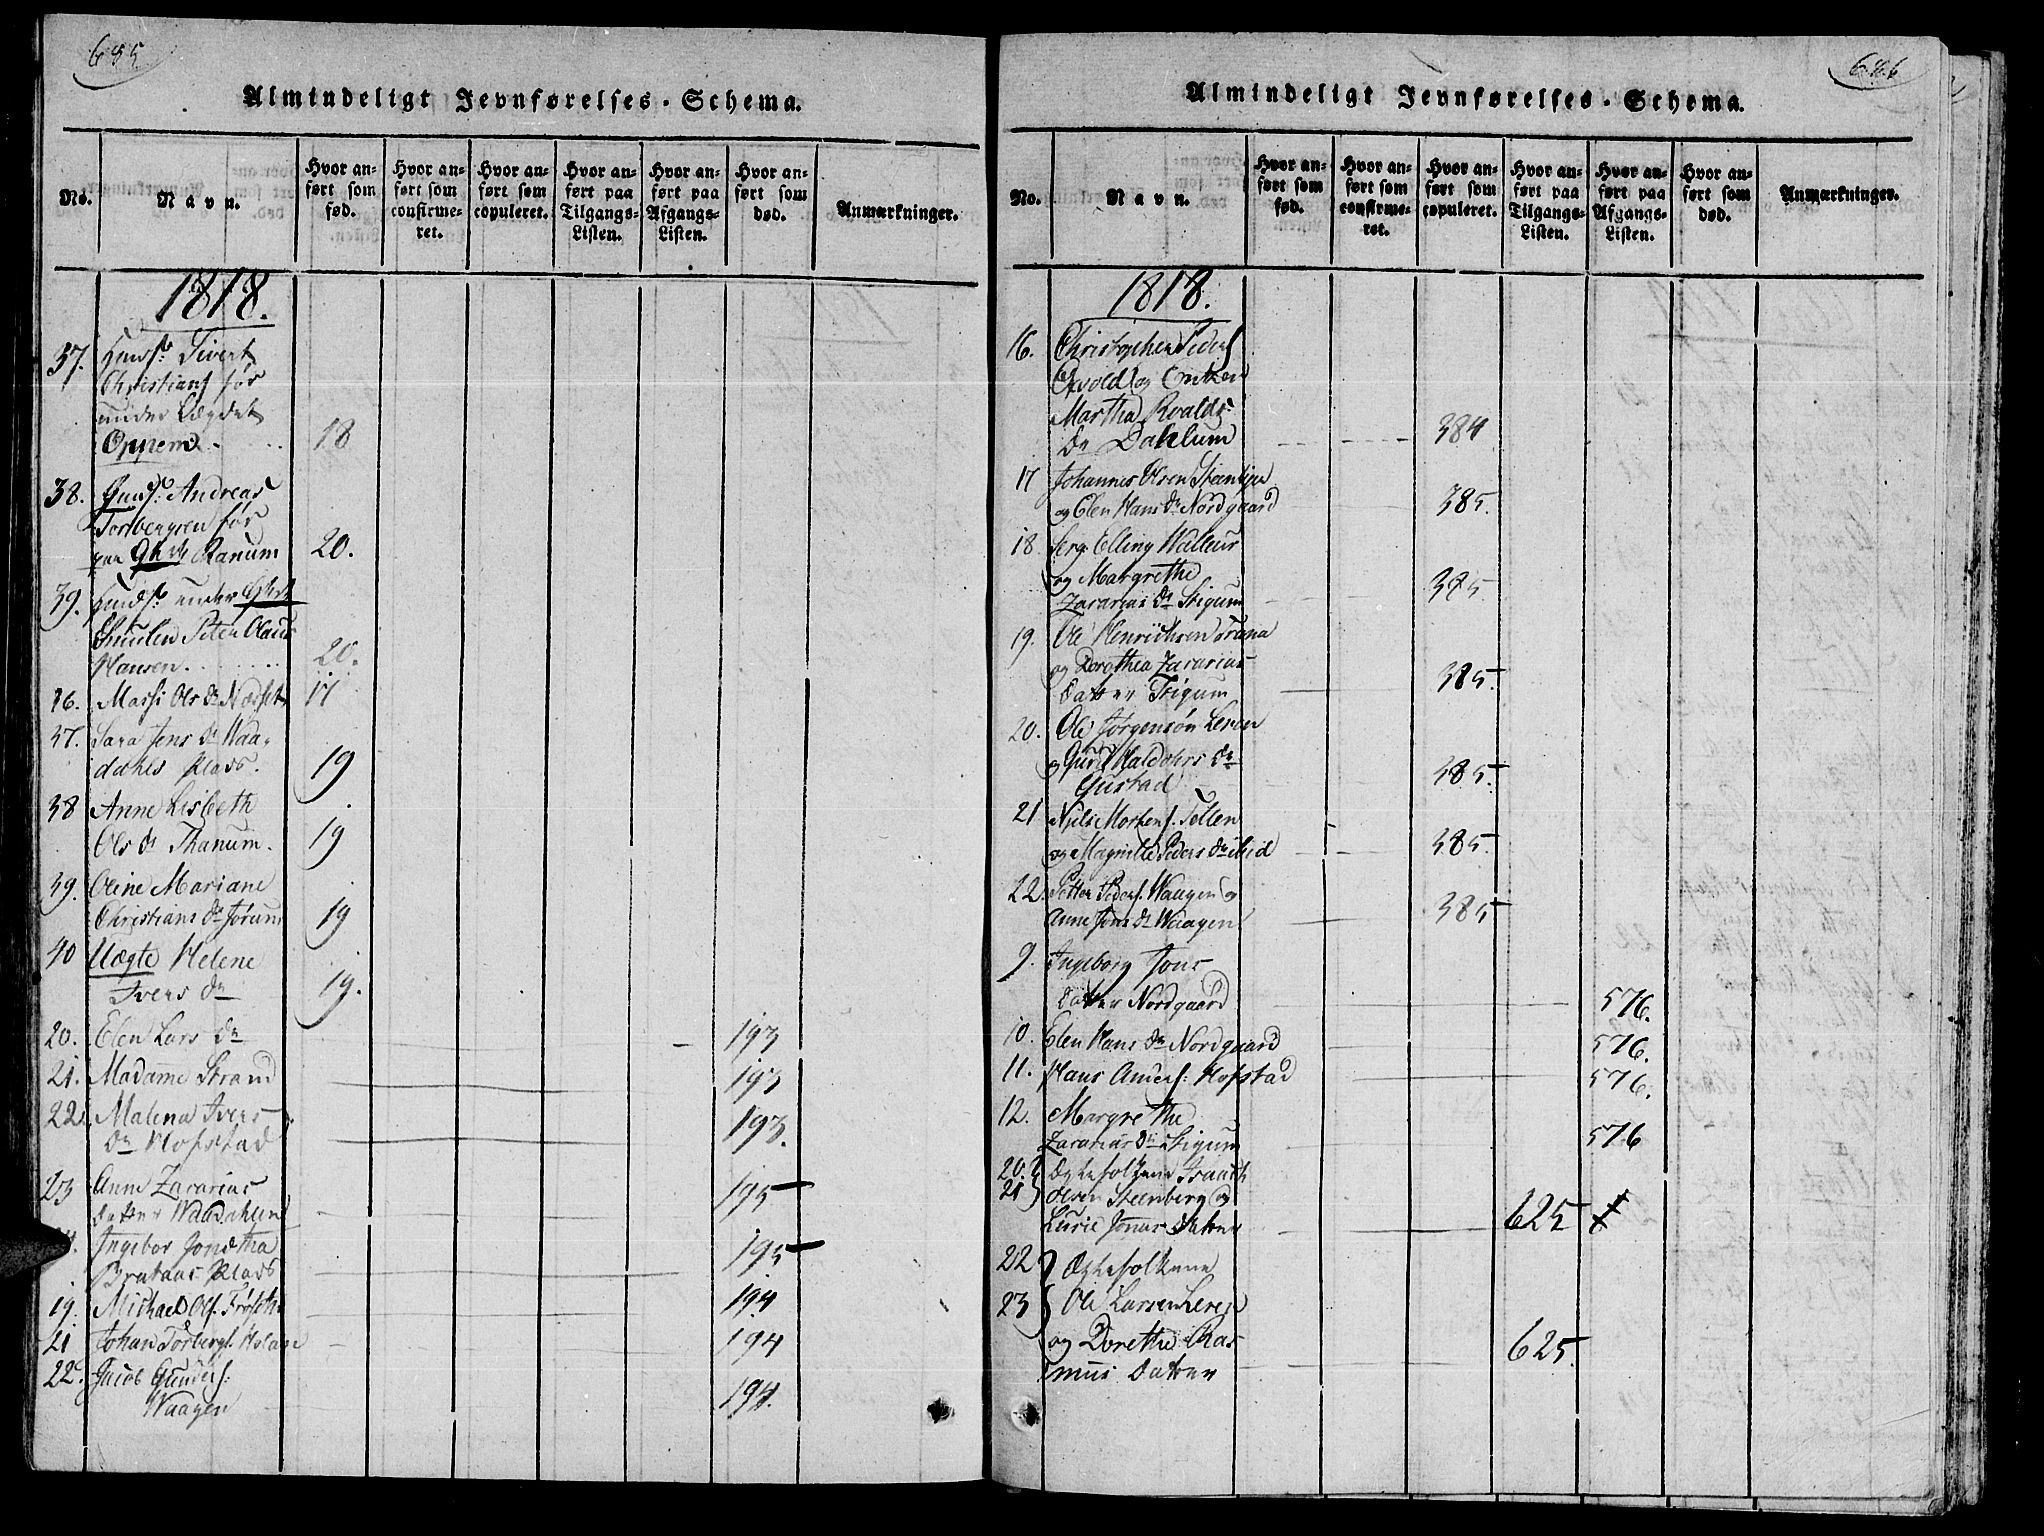 685
Almindeligt Jevnførelses-Schema.
No.
Navn.
Hvor an-
ført som
fød.
Hvor an-
ført som
confirme-
ret.
Hvor an-
ført som
copuleret.
Hvor an-
ført paa
Tilgangs-
Listen.
Hvor an-
ført paa
Afgangs-
Listen.
Hvor an-
ført som
død.
Anmærkninger.
1818.
37. Sivert
Christians før
under Lægdet
Oppem 18
38. Andreas
Torbergsen før
paa Ranum 20.
39. under
Peter Olaus
Hansen 20.
36. Massi Ols Dr Næsset 17
37. Sara Jens Dr Waa-
dahls Plads. 19
38 Anne Lisbeth
Ols Dr Thanum. 19
39. Oline Mariane
Christians Dr Jørum 19
40 Uægte Helene
Ivers Dr 19.
20. Elen Lars Dr 193
21. Madame Strand 193
22. Malena Ivers
Dr Hofstad 193.
23 Anne Zacarias
Datter Waadahlen 195
Ingebor
Plads 195
19. Michael Ols. 194
21 Johan Torbergs. 194
22. Jacob Gunders:
Waagen 194.
686
Almindeligt Jevnførelses-Schema.
No.
Navn.
Hvor an-
ført som
fød.
Hvor an-
ført som
confirme-
ret.
Hvor an-
ført som
copuleret.
Hvor an-
ført paa
Tilgangs-
Listen.
Hvor an-
ført paa
Afgangs-
Listen.
Hvor an-
ført som
død.
Anmærkninger.
1818.
16. Christopher Peders
og Enken
Martha Roalds
Dr Dahlum 384
17 Johannes Olsen
og Elen Hans Dr Nordgaard 385.
18. Serg. Elling
og Margrethe
Zacarias Dr Stigum 385
19. Ole Henrichsen
og Dorothea Zacarias
Datter Stigum 385.
20. Ole Jørgensøn Leren
og Guru Haldohrs Dr
Gustad 385.
21 Niels Mortens. Tellen
og Magnilde Peders Dr ibid 385.
22. Petter Peders. Waagen og
Anne Jons Dr Waagen 385
9. Ingeborg Jons
Datter Nordgaard 576.
10. Elen Hans Dr Nordgaard 576.
11. Hans Anders: Hofstad 576.
12. Margrethe
Zacarias Dr Stigum 576
20. Ægtefolkene
21 Olsen Steenberg og
Jonas Datter 625
22 Ægtefolkene
23 Ole Larsen
og Dorethe Ras-
mus Datter 625.